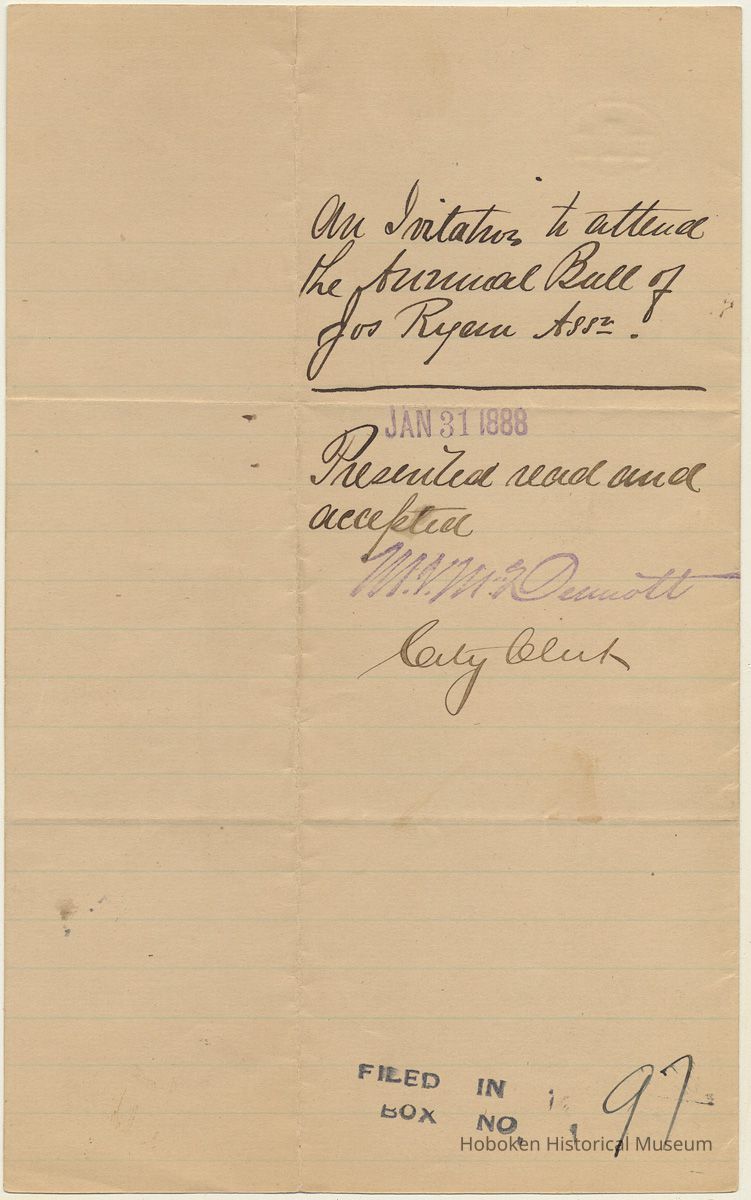 An Ivitation to attend
the Annual Ball of
Jos Ryan Assn.
JAN 31 1888
Presented read and
accepted
M. V. McDermott
City Clerk
FILED IN
BOX NO. 97
Hoboken Historical Museum